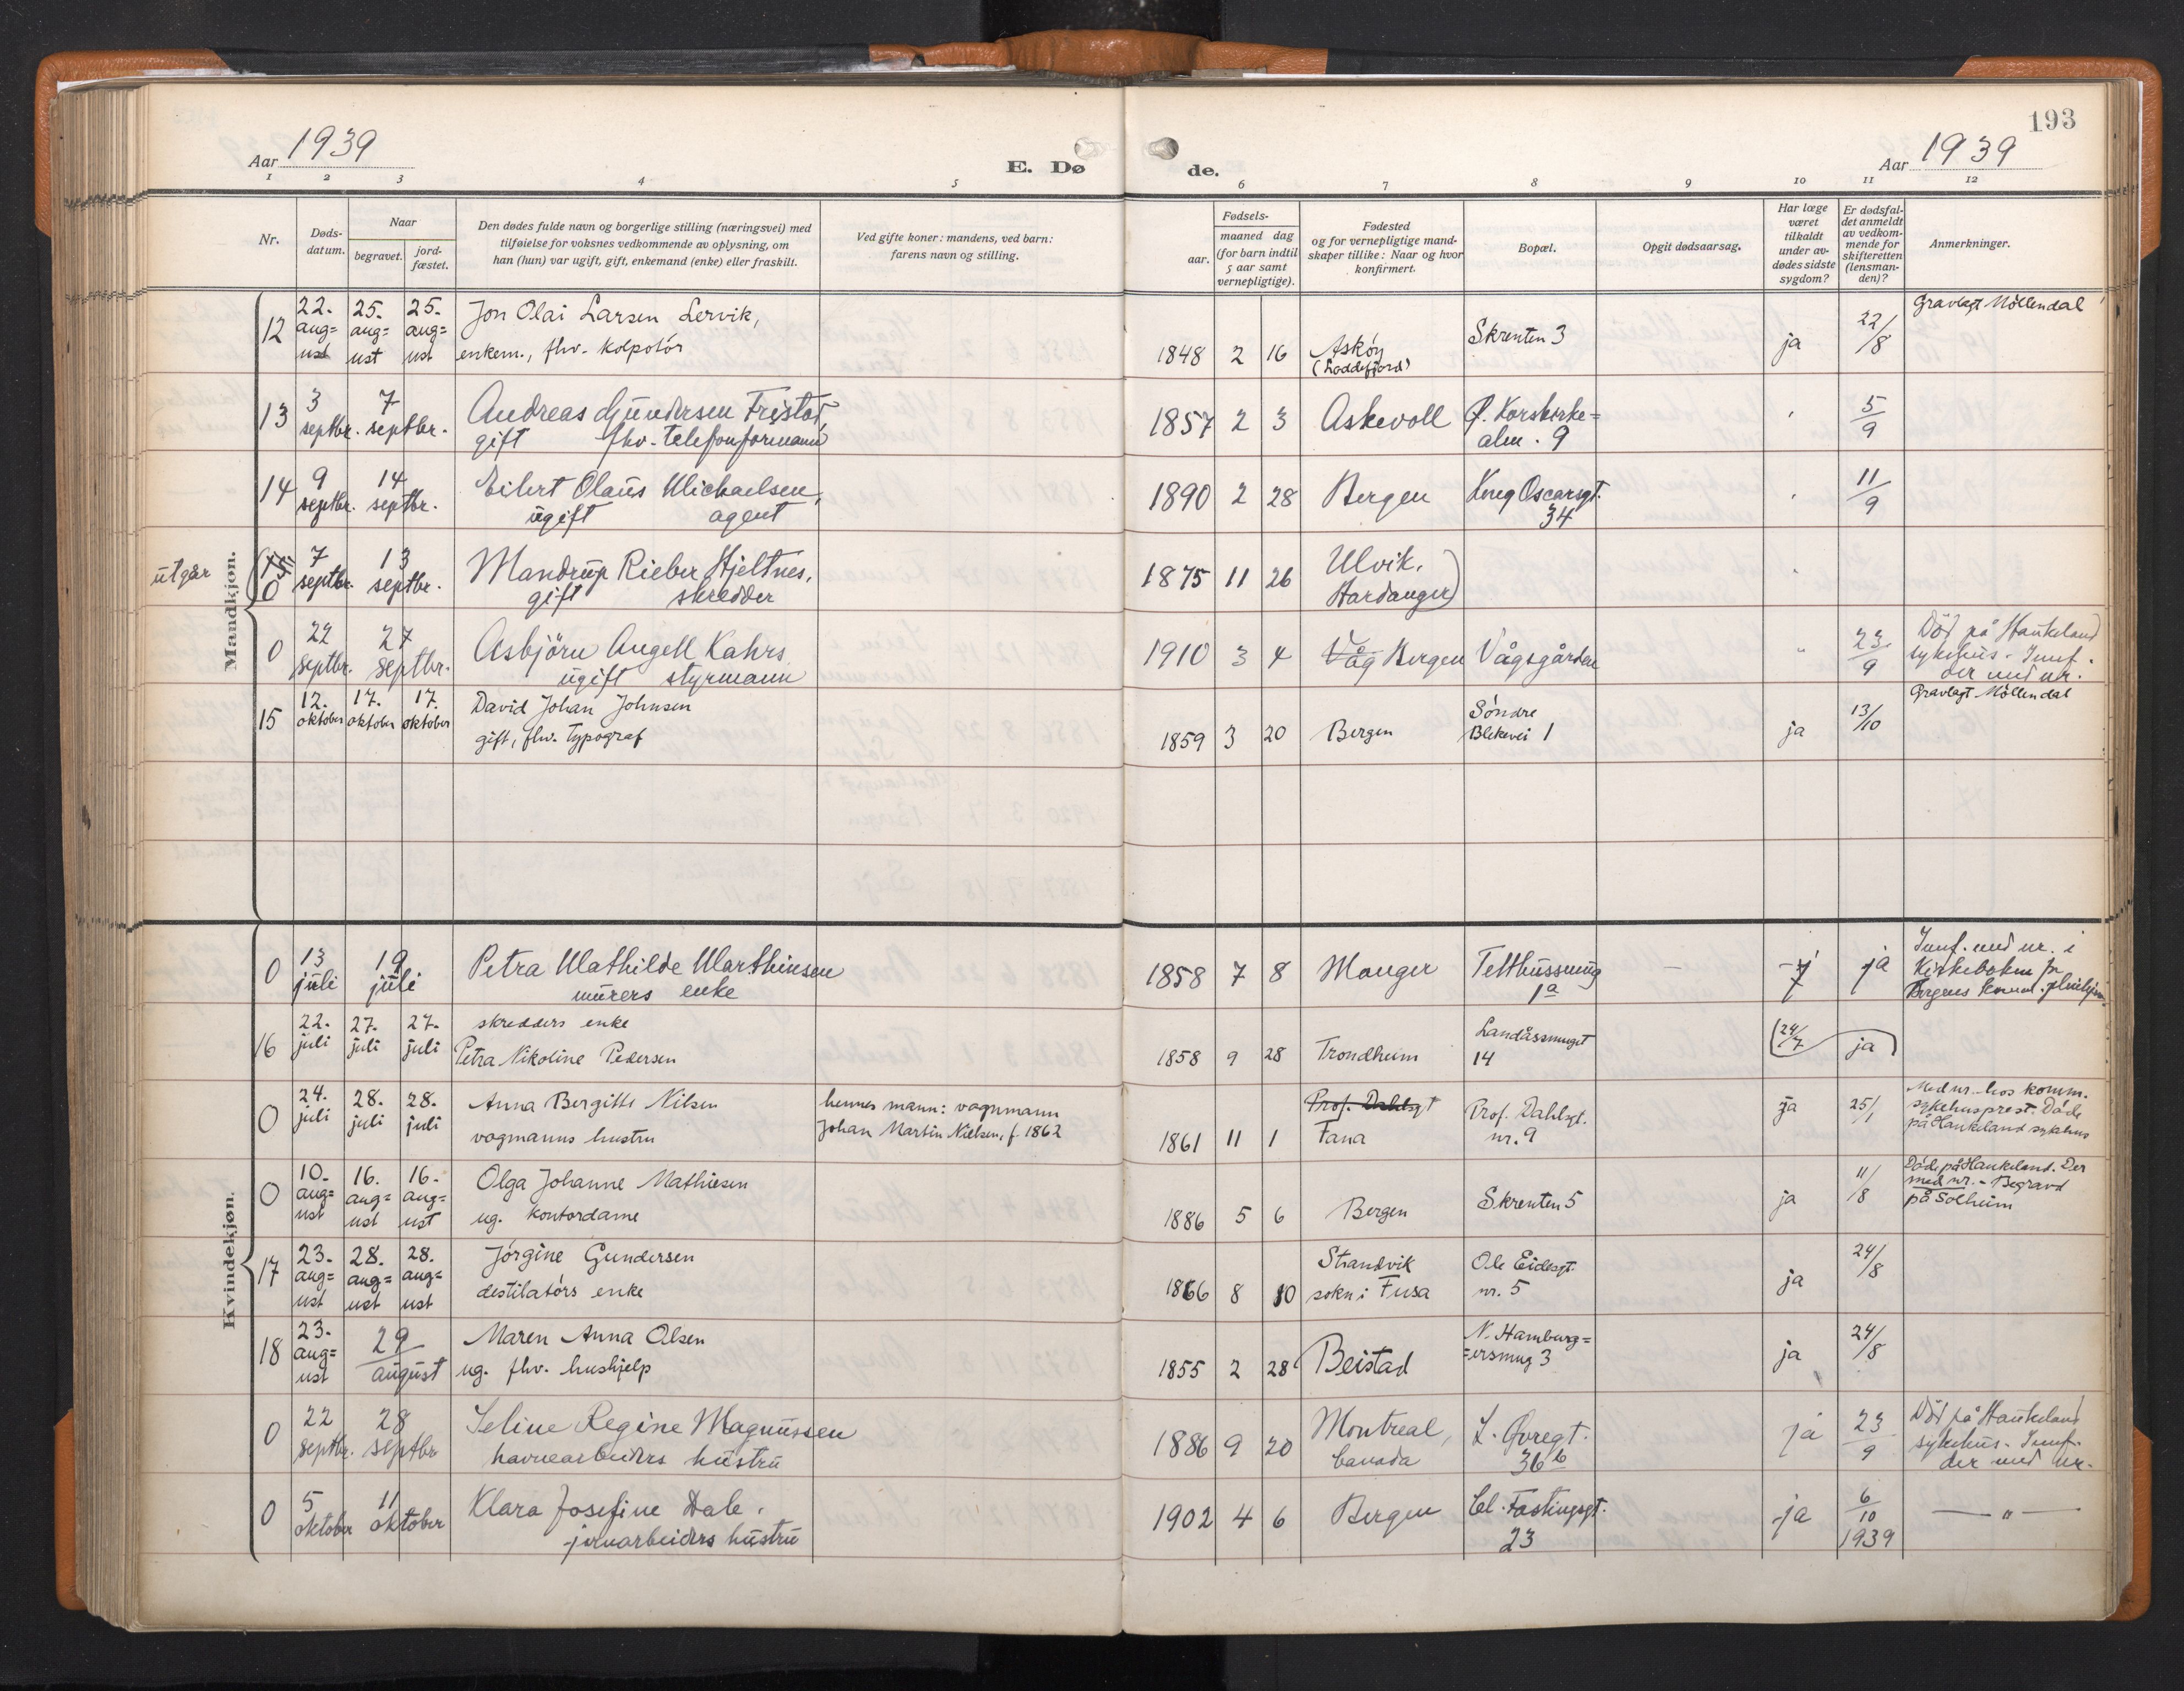 193
Aar 1939
E. Dø
de.
Aar 1939
1 2 3 4 5
6 7 8 9 10 11 12
Nr.
Døds-
datum.
Naar
begravet.
jord-
fæstet.
Den dødes fulde navn og borgerlige stilling (næringsvei) med
tilføielse for voksnes vedkommende av oplysning, om
han (hun) var ugift, gift, enkemand (enke) eller fraskilt.
Ved gifte koner: mandens, ved barn:
farens navn og stilling.
Fødsels-
aar.
maaned dag
(for barn indtil
5 aar samt
vernepligtige).
Fødested
og for vernepligtige mand-
skaper tillike: Naar og hvor
konfirmert.
Bopæl.
Opgit dødsaarsag.
Har læge
været
tilkaldt
under av-
dødes sidste
sygdom?
Er dødsfal-
det anmeldt
av vedkom-
mende for
skifteretten
(lensman-
den)?
Anmerkninger.
Mandkjøn.
12
22.
aug=
ust
25.
aug=
ust
25.
aug=
ust
Jon Olai Larsen Lervik,
enkem., fhv. kolportör
1848 2 16
Asköy
(Loddefjord)
Skrenten 3
ja
22/8
Gravlagt Möllendal
13
3
septbr.
7
septbr.
Andreas Gundersen Fristad,
gift fhv. telefonformann
1857 2 3
Askevoll
Ø. Korskirke=
alm. 9
5/9
14
9
septbr.
14
septbr.
Eilert Olaus Michaelsen,
ugift agent
1890 2 28
Bergen
Kong Oscarsgt.
34
11/9
utgår
15
0
7
septbr.
13
septbr.
Mandrup Rieber Hjeltnes,
gift skredder
1875 11 26
Ulvik,
Hardanger)
0
22
septbr.
27
septbr.
Asbjörn Angell Kahrs
ugift styrmann
1910 3 4
Våg Bergen
Vågsgården
"
23/9
Död på Haukeland
sykehus - Innf.
der med nr.
15
12.
oktober
17.
oktober
17.
oktober
David Johan Johnsen
gift, fhv. typograf
1859 3 20
Bergen
Söndre
Blekevei 1
ja
13/10
Gravlagt Möllendal
Kvindekjøn.
0
13
juli
19
juli
Petra Mathilde Marthinsen
murers enke
1858 7 8
Manger
Telthussmug
1a
ja
Innf. med nr. i
Kirkeboken for
Bergens komm. pleiehjem.
16
22.
juli
27.
juli
27.
juli
skredders enke
Petra Nikoline Pedersen
1858 9 28
Trondheim
Landåssmuget
14
(24/7 ja)
0
24.
juli
28.
juli
28.
juli
Anna Bergitte Nilsen
vogmanns hustru
hennes mann: vognmann
Johan Martin Nielsen, f. 1862
1861 11 1
Prof. Dahlsgt
Fana
Prof. Dahlsgt.
nr. 9
ja
25/1
Med nr. hos komm.
sykehusprest. Döde
på Haukeland sykehus
0
10.
aug=
ust
16.
aug=
ust
16.
aug=
ust
Olga Johanne Mathiesen
ug. kontordame
1886 5 6
Bergen
Skrenten 5
ja
11/8
Döde på Haukeland. Der
med nr. - Begravd
på Solheim
17
23.
aug=
ust
28.
aug=
ust
28.
aug=
ust
Jörgine Gundersen
destilatörs enke
1866 8 10
Strandvik
sokn i Fusa
Ole Eidesgt.
nr. 5
ja
24/8
18
23.
aug=
ust
29
august
Maren Anna Olsen
ug. fhv. hushjelp
1855 2 28
Beistad
N. Hamburg=
=ersmug 3
ja
24/8
0
22
septbr.
28
septbr
Seline Regine Magnussen
havnearbeiders hustru
1886 9 20
Montreal,
Canada
L. Øvregt.
36b
ja
23/9
Död på Haukeland
sykehus - Innf.
der med nr.
0
5
oktober
11
oktober
Klara Josefine Dale.
jernarbeiders hustru
1902 4 6
Bergen
Cl. Fastingsgt.
23
ja
6/10
1939
— " —